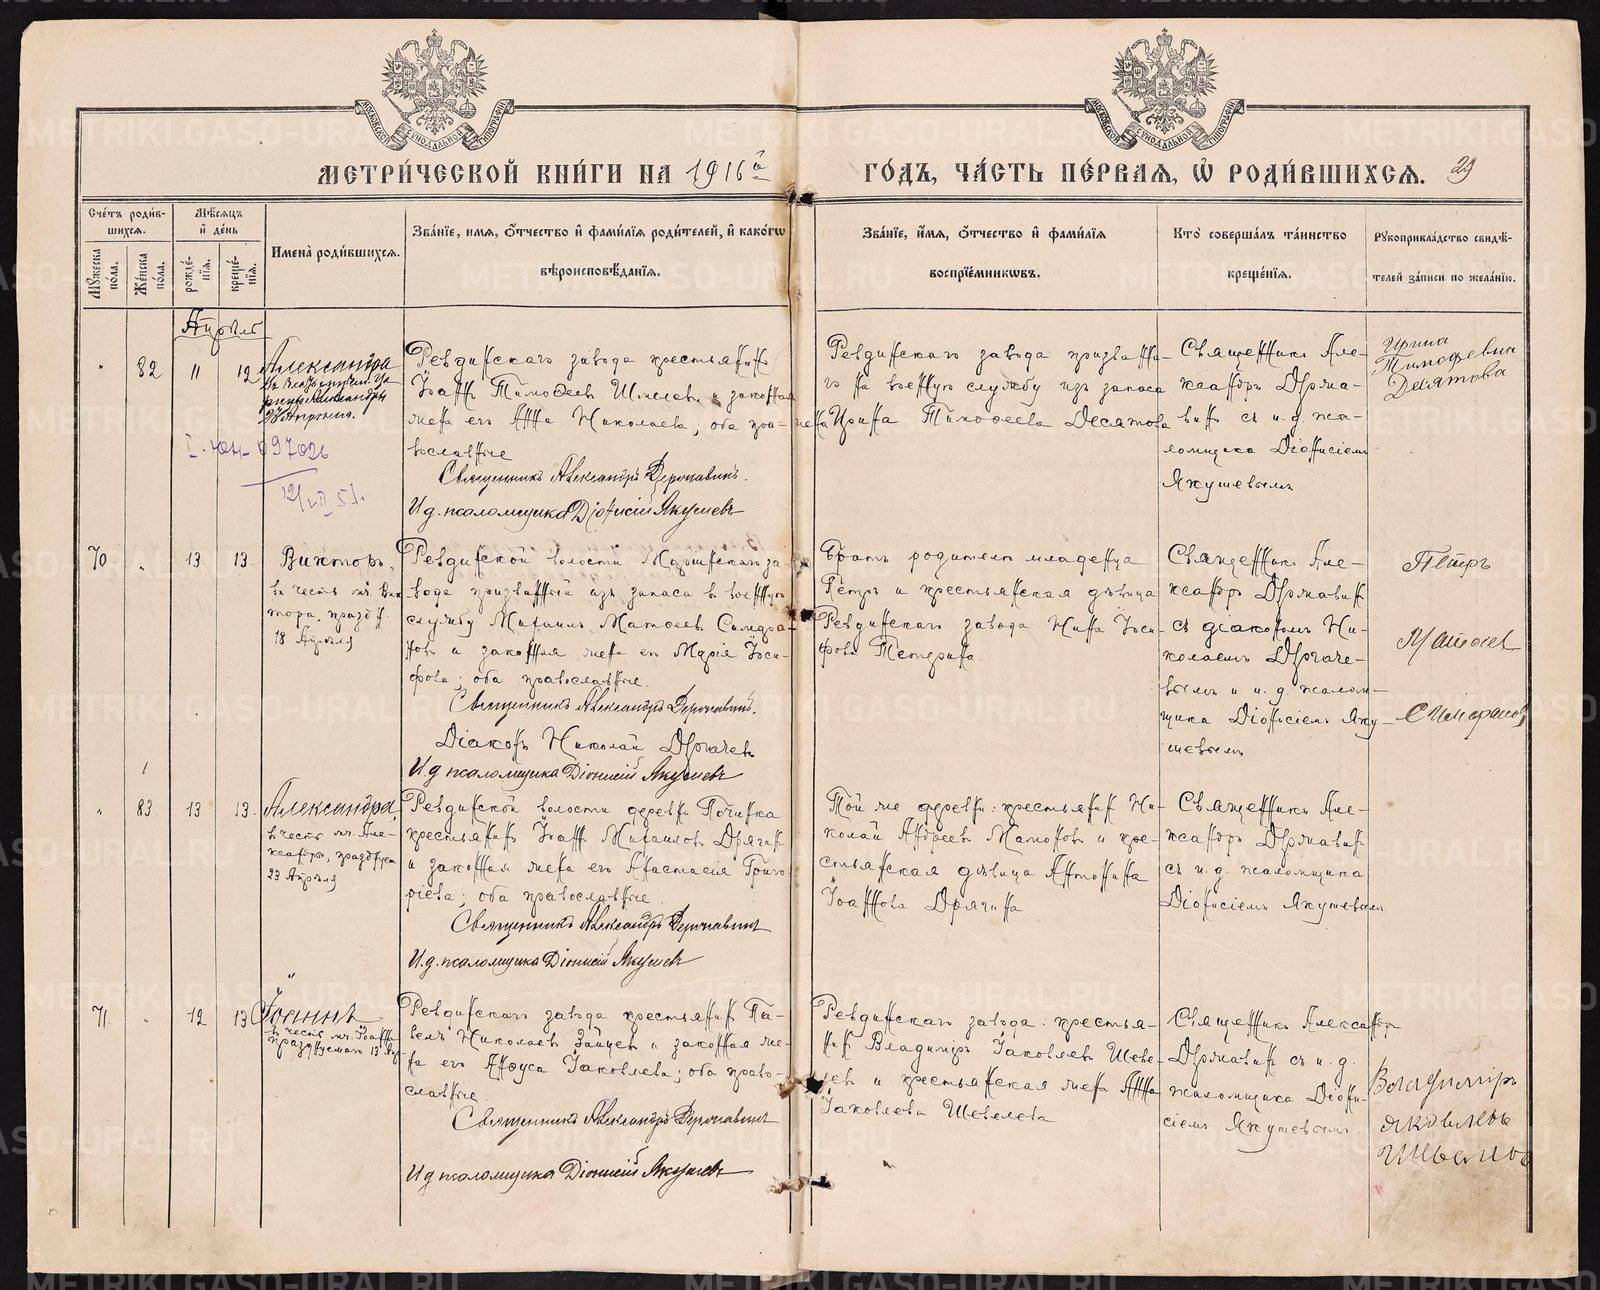 МЕТРИ́ЧЕСКОЙ КНИ́ГИ НА 1916й
ГО́ДЪ, ЧА́СТЬ ПЕ́РВАѦ, Ѡ҆ РОДИ́ВШИХСѦ. 29
Сче́тъ роди́в-
шихсѧ.
Мꙋ́жеска по́ла.
Же́нска по́ла.
Мѣ́сѧцъ
и҆ де́нь
рожде́-нїѧ.
креще́-нїѧ.
Имена̀ роди́вшихсѧ.
Зва́нїе, и́мѧ, ѻ҆́тчество и҆ фами́лїѧ роди́телей, и҆ како́гѡ
вѣроисповѣ́данїѧ.
Зва́нїе, и́мѧ, ѻ҆́тчество и҆ фами́лїѧ
воспрїе́мникѡвъ.
Кто̀ соверша́лъ та́инство
креще́нїѧ.
Рꙋкоприкла́дство свидѣ́-
телей за́писи по жела́нїю.
Апрѣль
" 82 11 12 Александра
23 Апрѣля.
Ревдинскаго завода крестьянинъ
Іоаннъ Тимоѳеевъ Шмелевъ и законная
жена его Анна Николаева; оба пра-
вославные
Священникъ Александръ Державинъ.
И.д. псаломщика Діонисій Якушевъ
Ревдинскаго завода призванна-
го на военную службу изъ запаса
жена Ирина Тимоѳеева Десятова
Священникъ Але-
ксандръ Держа-
винъ съ и.д. пса-
ломщика Діонисіемъ
Якушевымъ
Ирина
Тимофевна
Десятова
70 " 13 13 Викторъ,
въ честь мч. Вик
тора, праздн
18 Апрѣля
Ревдинской волости Маріинскаго за-
вода призванный изъ запаса в военную
службу Михаилъ Матѳеевъ Симфра-
новъ и законная жена его Марія Іоси-
фова; оба православные.
Священникъ Александръ Державинъ.
Діаконъ Николай Дягачев
И.д псаломщика Діонисій Якушевъ
Братъ родителя младенца
Петръ и крестьянская дѣвица
Ревдинскаго завода Нина Іоси-
фова Петрина.
Священникъ Але-
ксандръ Державинъ
съ діакономъ Ни-
колаемъ
вымъ и и.д. псалом-
щика Діонисіемъ Яку-
шевымъ
Петръ
Матѳеев
" 83 13 13 Александра,
въ честь мч. Але-
ксандры, празднуем
23 Апрѣля
Ревдинской волости деревни Починка
крестьянинъ Іоаннъ Михаиловъ Дрягинъ
и законная жена его Анастасія Григо-
ріева; оба православные.
Священникъ Александръ Державинъ
И.д. псаломщика Діонисій Якушевъ
Той же деревни крестьянинъ Ни-
колай Андреевъ Мамоновъ и кре-
стьянская дѣвица Антонина
Іоаннова Дрягина
Священникъ Але-
ксандръ Державинъ
съ и.д. псаломщика
Діонисіемъ Якушевымъ
71 " 12 13 Іоаннъ
въ честь мч. Іоанна
празднуемаго 13 Апр
Ревдинскаго завода крестьянинъ Па-
велъ Николаевъ Зайцевъ и законная же-
на его Анфуса Іаковлева; оба право-
славные.
Священникъ Александръ Державинъ
И д псаломщика Діонисій Якушевъ
Ревдинскаго завода: крестья-
нинъ Владиміръ Іаковлевъ Шеве-
левъ и крестьянская жена Анна
Іаковлева Шевелева
Священникъ Александръ
Державинъ съ и.д.
псаломщика Діони-
сіемъ Якушевымъ.
Владимиръ
Яковлевъ
Шевелевъ
METRIKI.GASO-URAL.RU